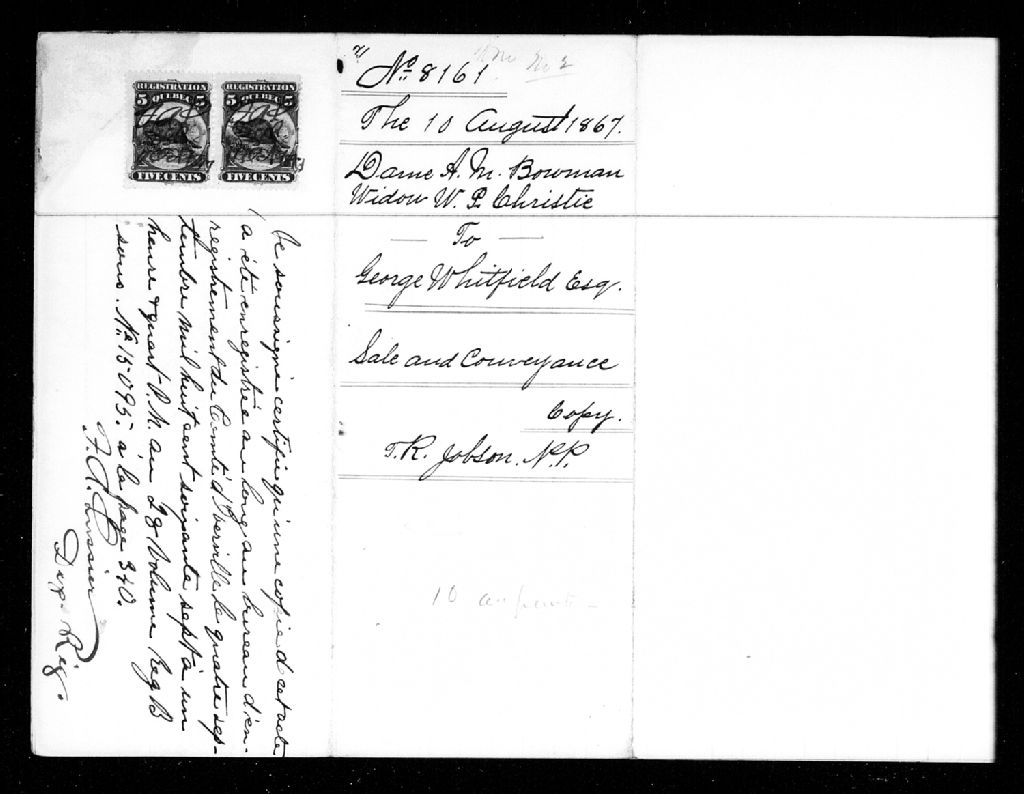 REGISTRATION REGISTRATION
5 QUEBEC 5 5 QUEBEC 5
FIVE CENTS FIVE CENTS
Je soussigné certifie qu'une copie d cet acte
a été enregistrée au long au bureau d'en-
registrement du Comté d'Iberville le quatre sep-
tembre mil huit cent soixante sept à un
heure & quart P.M. au 28 Volume Reg B
sous. No 15095. à la page 340.
F. A. Lussier
Dep. Reg.
No 8161
The 10 August 1867.
Dame A. M. Bowman
Widow W. P. Christie
To
George Whitfield Esq.
Sale and Conveyance
Copy.
T. R. Jobson. N.P.
10 arpents